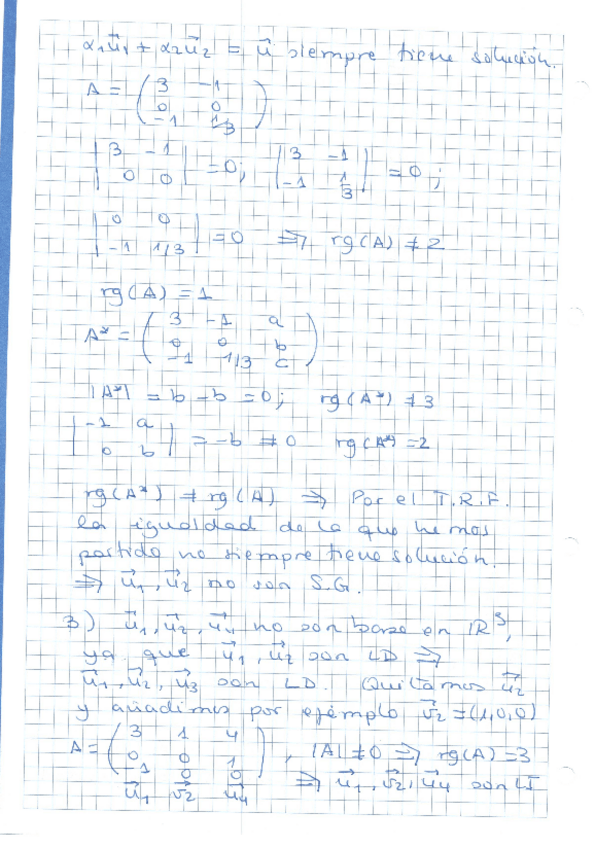 α₁u⃗₁ + α₂u⃗₂ = u⃗ siempre tiene solución.
A = ( 3 -1
0 0
-1 1/3 )
| 3 -1
0 0 | = 0; | 3 -1
-1 1/3 | = 0 ;
| 0 0
-1 1/3 | = 0 ⇒ rg(A) ≠ 2
rg(A) = 1
A* = ( 3 -1 a
0 0 b
-1 1/3 c )
|A*| = b - b = 0; rg(A*) ≠ 3
| -1 a
0 b | = -b ≠ 0 rg(A*) = 2
rg(A*) ≠ rg(A) ⇒ Por el T.R.F.
la igualdad de la que hemos
partido no siempre tiene solución.
⇒ u⃗₁, u⃗₂ no son S.G.
3) u⃗₁, u⃗₂, u⃗₄ no son base en ℝ³,
ya que u⃗₁, u⃗₂ son LD ⇒
u⃗₁, u⃗₂, u⃗₃ son LD. Quitamos u⃗₂
y añadimos por ejemplo v⃗₂ = (1,0,0)
A = ( 3 1 4
0 0 1
-1 0 0 ) , |A| ≠ 0 ⇒ rg(A) = 3
u⃗₁ v⃗₂ u⃗₄ ⇒ u⃗₁, v⃗₂, u⃗₄ son LI